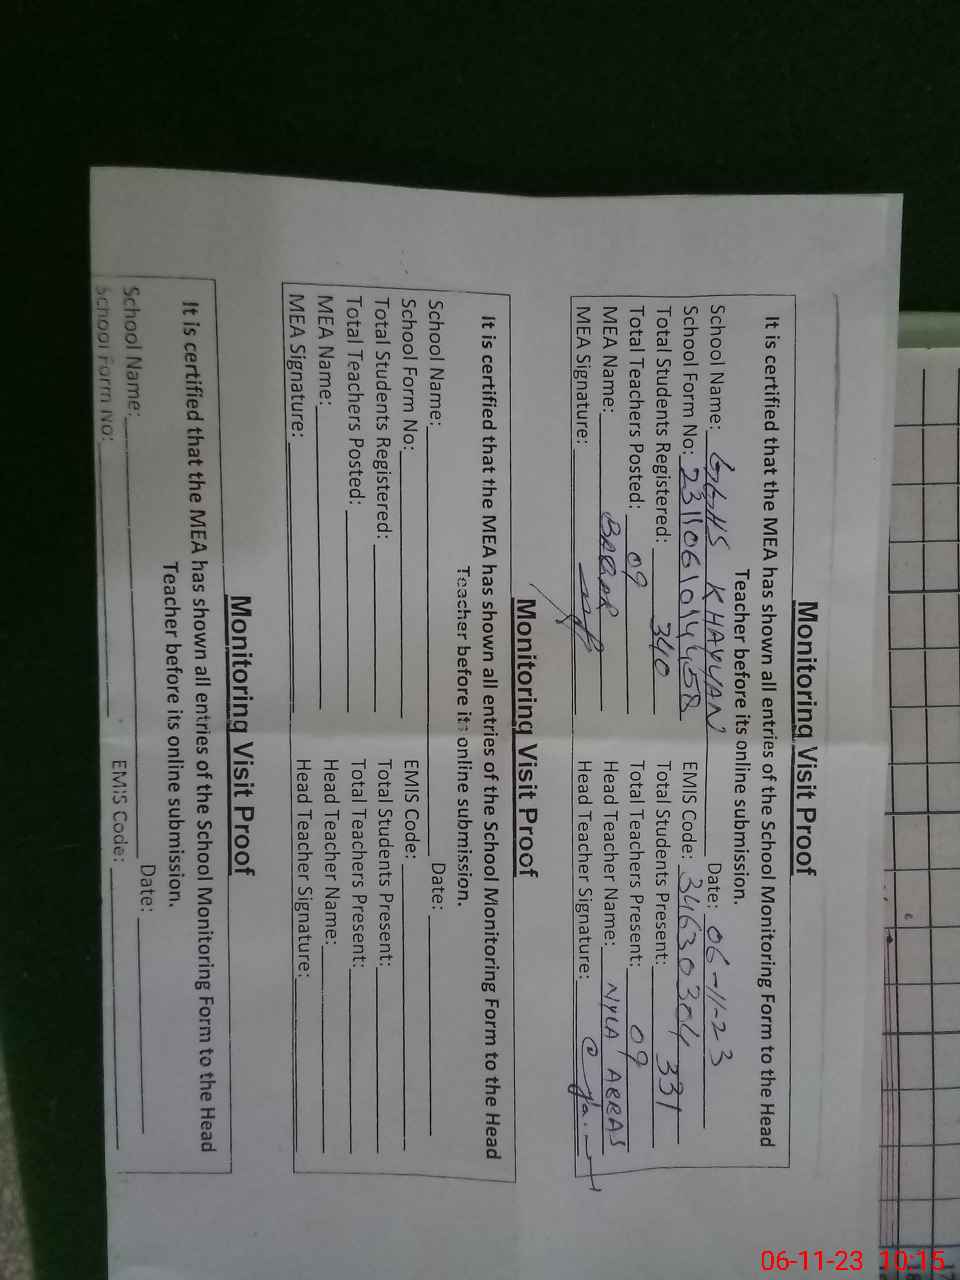 Monitoring Visit Proof
It is certified that the MEA has shown all entries of the School Monitoring Form to the Head
Teacher before its online submission.
School Name: GGHS KHAYYAN Date: 06-11-23
School Form No: EMIS Code: 34630304
Total Students Registered: 340 Total Students Present: 331
Total Teachers Posted: 09 Total Teachers Present: 09
MEA Name: Head Teacher Name: NYLA ABBAS
MEA Signature: Head Teacher Signature:
Monitoring Visit Proof
It is certified that the MEA has shown all entries of the School Monitoring Form to the Head
Teacher before its online submission.
School Name: Date:
School Form No: EMIS Code:
Total Students Registered: Total Students Present:
Total Teachers Posted: Total Teachers Present:
MEA Name: Head Teacher Name:
MEA Signature: Head Teacher Signature:
Monitoring Visit Proof
It is certified that the MEA has shown all entries of the School Monitoring Form to the Head
Teacher before its online submission.
School Name: Date:
School Form No: EMIS Code:
06-11-23 10:15